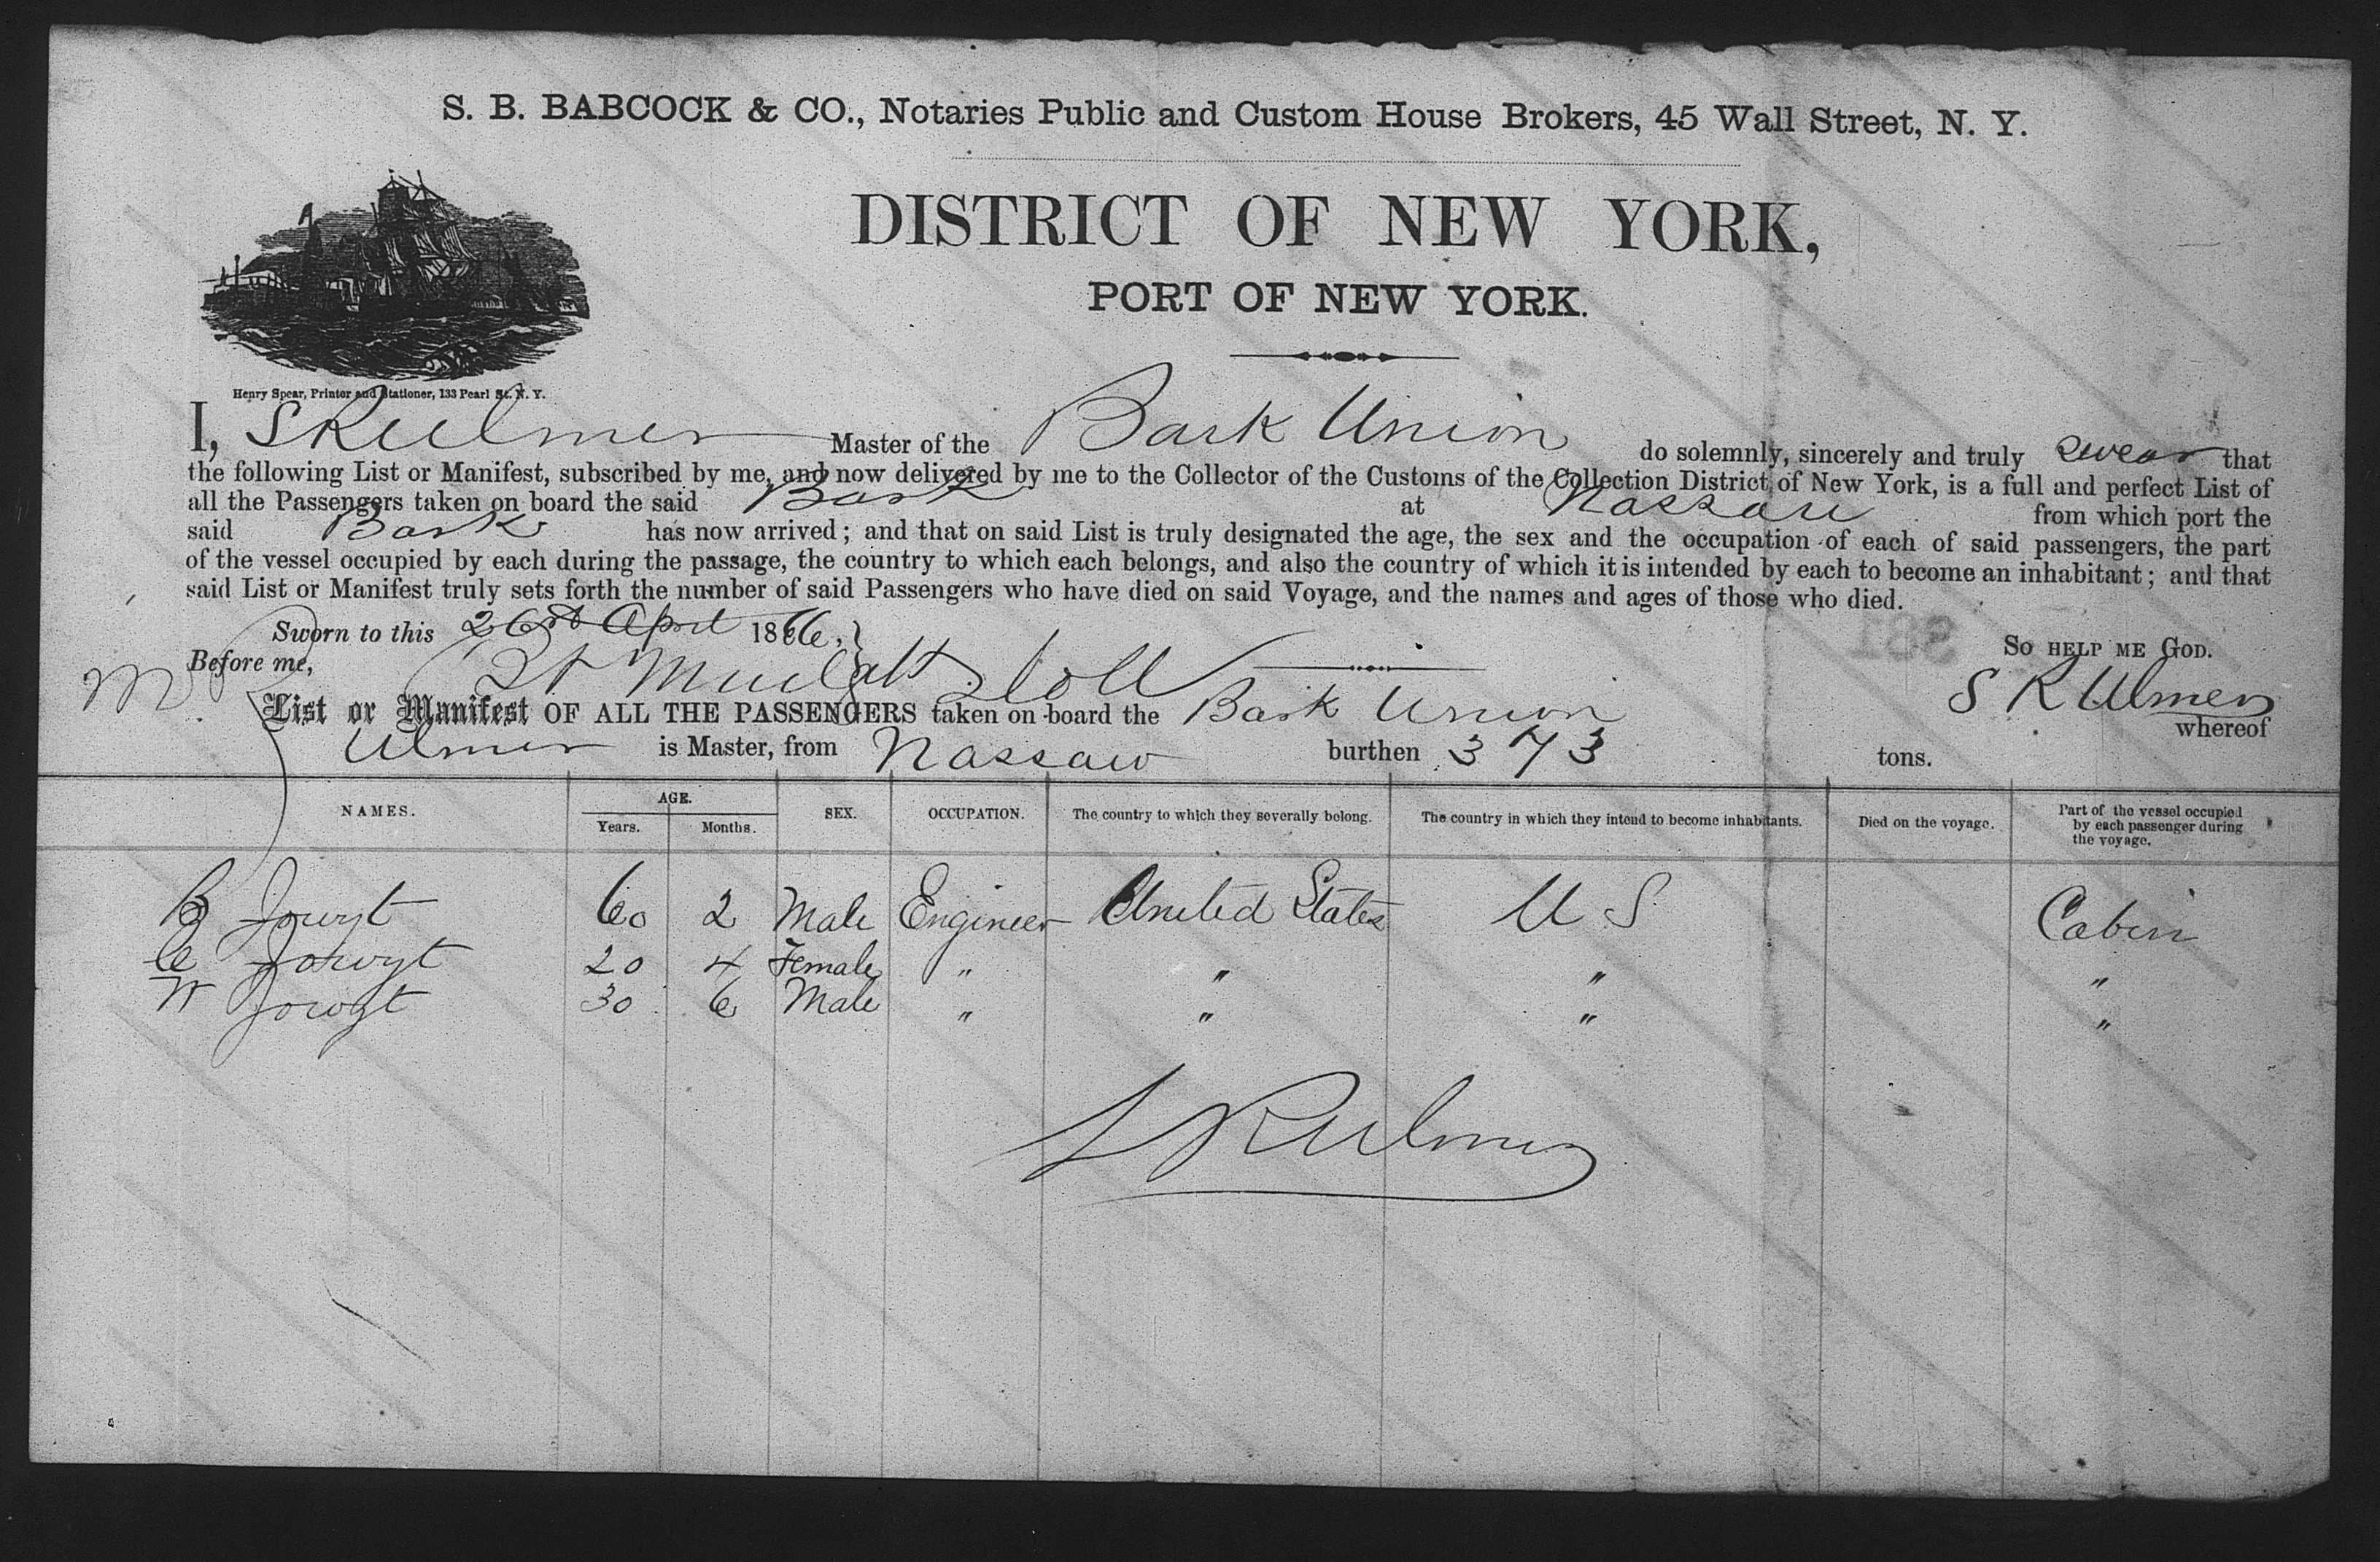 S. B. BABCOCK & CO., Notaries Public and Custom House Brokers, 45 Wall Street, N. Y.
DISTRICT OF NEW YORK,
PORT OF NEW YORK.
Henry Spear, Printer and Stationer, 133 Pearl St. N. Y.
I, S R Ulmer Master of the Bark Union do solemnly, sincerely and truly swear that
the following List or Manifest, subscribed by me, and now delivered by me to the Collector of the Customs of the Collection District of New York, is a full and perfect List of
all the Passengers taken on board the said Bark at Nassau from which port the
said Bark has now arrived; and that on said List is truly designated the age, the sex and the occupation of each of said passengers, the part
of the vessel occupied by each during the passage, the country to which each belongs, and also the country of which it is intended by each to become an inhabitant; and that
said List or Manifest truly sets forth the number of said Passengers who have died on said Voyage, and the names and ages of those who died.
Sworn to this 26 April 1866, SO HELP ME GOD.
Before me, S R Ulmer
List or Manifest OF ALL THE PASSENGERS taken on board the Bark Union whereof
Ulmer is Master, from Nassaw burthen 373 tons.
NAMES. AGE. Years. Months. SEX. OCCUPATION. The country to which they severally belong. The country in which they intend to become inhabitants. Died on the voyage. Part of the vessel occupied by each passenger during the voyage.
B 60 2 Male Engineer United States U S Cabin
20 4 Female " " " "
30 6 Male " " " "
S R Ulmer